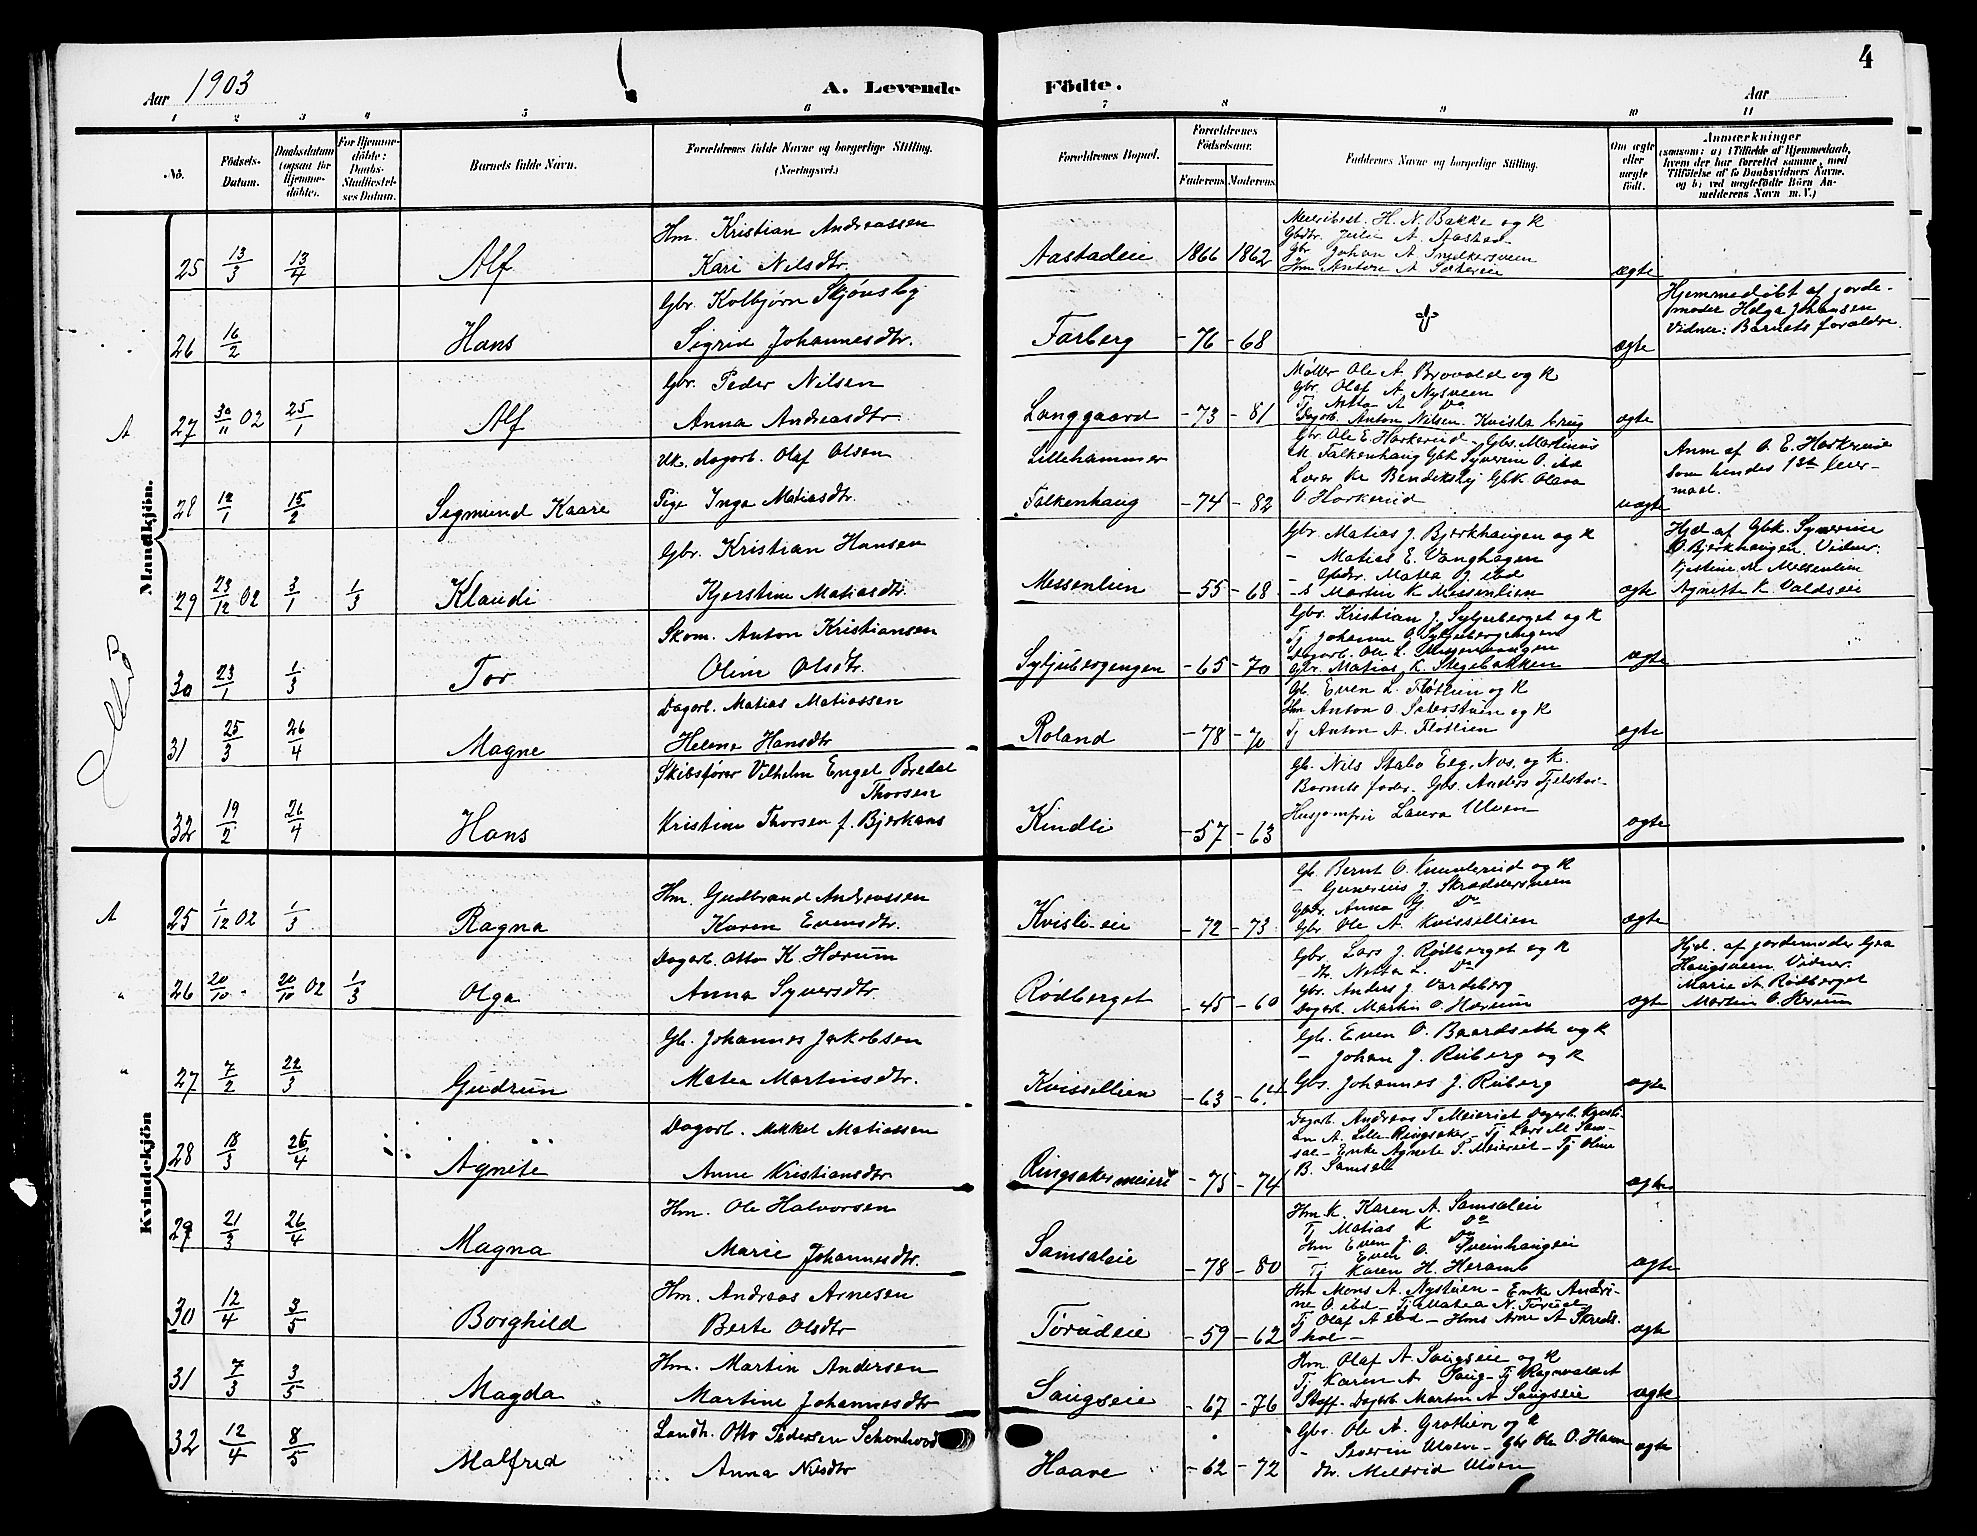 Aar 1903
A. Levende
Födte.
4
Aar
1 2 3 4 5 6 7 8 9 10 11
No.
Födsels-Datum.
Daabsdatum (ogsaa for Hjemmedöbte).
For Hjemmedöbte: Daabs-Stadfæstelses Datum.
Barnets fulde Navn.
Forældrenes fulde Navne og borgerlige Stilling. (Næringsvei.)
Forældrenes Bopæl.
Forældrenes Födselsaar.
Faderens. Moderens.
Faddernes Navne og borgerlige Stilling.
Om ægte eller uægte födt.
Anmærkninger
(saasom: a) i Tilfælde af Hjemmedaab, hvem der har forrettet samme, med Tilföielse af to Daabsvidners Navne, og b) ved uægtefödte Börn Anmelderens Navn m. V.)
Mandkjön.
25 13/3 13/4 Alf
Hm. Kristian Andreassen
Kari Nilsdtr.
Aastadeie 1866 1862
Meieribest. H. N. Bakke og K
Gbdtr. Julie A. Aastad
Gbr Johan A. Snedkersveen
Hm Anton A.
ægte
26 16/2 Hans
Gbr. Kolbjørn Skjønsby
Sigrid Johannesdtr.
Farberg -76 -68
ægte
Hjemmedöbt af jordemoder Helga Johansen
Vidner: Barnets forældre.
A
27 30/11 02 25/1 Alf
Gbr. Peder Nilsen
Anna Andreasdtr.
Langgaard -73 -81
Møller Ole A. Brovold og K
Gbr. Olaf A. Nysveen
Tj. Netta A Do
Dagarb. Anton Nilsen Kvistabrug
ægte
28 12/1 15/2 Sigmund Kaare
Uk. dagarb. Olaf Olsen
Pige Inga Matiasdtr.
Lillehammer
Falkenhaug -74 -82
Gbr. Ole E. Horkerud - Gbs. Martinus
M. Falkenhaug Gbk Syverine O. ibd
Lærer Kr Bendiksby Gbk Olava
O. Horkerud
uægte
Anm af O. E. Horkerud
som hendes 1ste leiermaal.
29 23/12 02 3/1 1/3 Klaudi
Gbr. Kristian Hansen
Kjerstine Matiasdtr.
Messenlien -55 -68
Gbr. Matias J. Bjerkhaugen og K
- Matias E. Vanghagen
- Gbdtr. Matea O ibd
- S Martin K Messenlien
ægte
Hjd. af Gbk. Syverine
O. Bjerkhaugen. Vidner:
Kjestine M Messenlien
Agnette K Valdseie
30 23/1 1/3 Tor
Skom. Anton Kristiansen
Oline Olsdtr.
Syljubergengen -65 -70
Gbr. Kristian J. Syljuberget og K
Tj Johanne O. Syljubergengen
Dagarb. Ole L.
Gbr. Matias K. Stegebakken
ægte
31 25/3 26/4 Magne
Dagarb. Matias Matiassen
Helena Hansdtr
Roland -78 -70
Gb. Even L. Fløtlien og K
Hm Anton O. Sæterstuen og K
Tj Anton A. Fløtlien
ægte
32 19/2 26/4 Hans
Skibsfører Vilhelm Engel Bredal
Thorsen
Kristine Thorsen f. Bjerkaas
Kindli -57 -63
Gb. Nils Stabo Eeg, Næs, og K.
Barnets fader. Gbs. Anders Fjelstad
Husjomfru Laura Ulven
ægte
Kvindekjön
A
25 1/12 02 1/3 Ragna
Hm. Gudbrand Andreassen
Karen Evensdtr.
Kvislieie -72 -73
Gb. Bernt O. og K
- Gunerius J. Skræddersveen
Gbdr. Anna G. Do
Gbr Ole A. Kvissellien
ægte
"
26 20/10 - 20/10 02 1/3 Olga
Dagarb. Otto K. Hærum
Anna Syversdtr.
Rødberget -45 -60
Gbr. Lars J. Rødberget og K
dr. Netta L. Do
Gbr. Anders J. Vardeberg
Dagarb. Martin O. Hærum
ægte
Hjd. af jordemoder Gea
Haugsveen. Vidner:
Marie A. Rødberget
Martin O. Hærum
"
27 7/2 22/3 Gudrun
Gb. Johannes Jakobsen
Matea Martinsdtr.
Kvissellien -63 -64
Gb. Even O. Baardseth og K
- Johan J. Ruberg og K
Gbs. Johannes J. Ruberg
ægte
28 18/3 26/4 Agnete
Dagarb. Mikkel Matiassen
Anne Kristiansdtr
Ringsaker meieri -75 -74
Dagarb. Andreas T Meieriet Dagarb. Kristian
A. Lille-Ringsaker Tj Lars M Samsal
- Enke Agnete T. Meieriet - Tj Oline
B. Samsal
ægte
29 21/3 26/4 Magna
Hm. Ole Halvorsen
Marie Johannesdtr.
Samsaleie -78 -80
Hm K. Karen A. Samsaleie
Tj Matias K Do
Hm Even J. Do
- Even O. Sveinhaugeie
Tj Karen H. Heramb
ægte
30 12/4 3/5 Borghild
Hm. Andreas Arnesen
Berte Olsdtr
Torudeie -59 -62
Hm Mons A. Nystuen - Enke Andrine
O. ibd - Tj Matea N. Torud
Tj Olaf A ibd - Hms Arne A Skredshol
-
ægte
31 7/3 3/5 Magda
Hm. Martin Andersen
Martine Johannesdtr
Saugseie -67 -76
Hm. Olaf A. Saugseie og K
Tj Karen A Saug - Tj Ragnvald A
Stoff - Dagarb Martin A. Saugseie
ægte
32 12/4 8/5 Malfred
Landh. Otto Pedersen Schonhovd
Anna Nilsdtr
Haave -62 -72
Gbr. Ole A. Grøtlien og K
- Severin Ulven - Gbr Ole O. Haave
dr. Meldrid Ulven
ægte